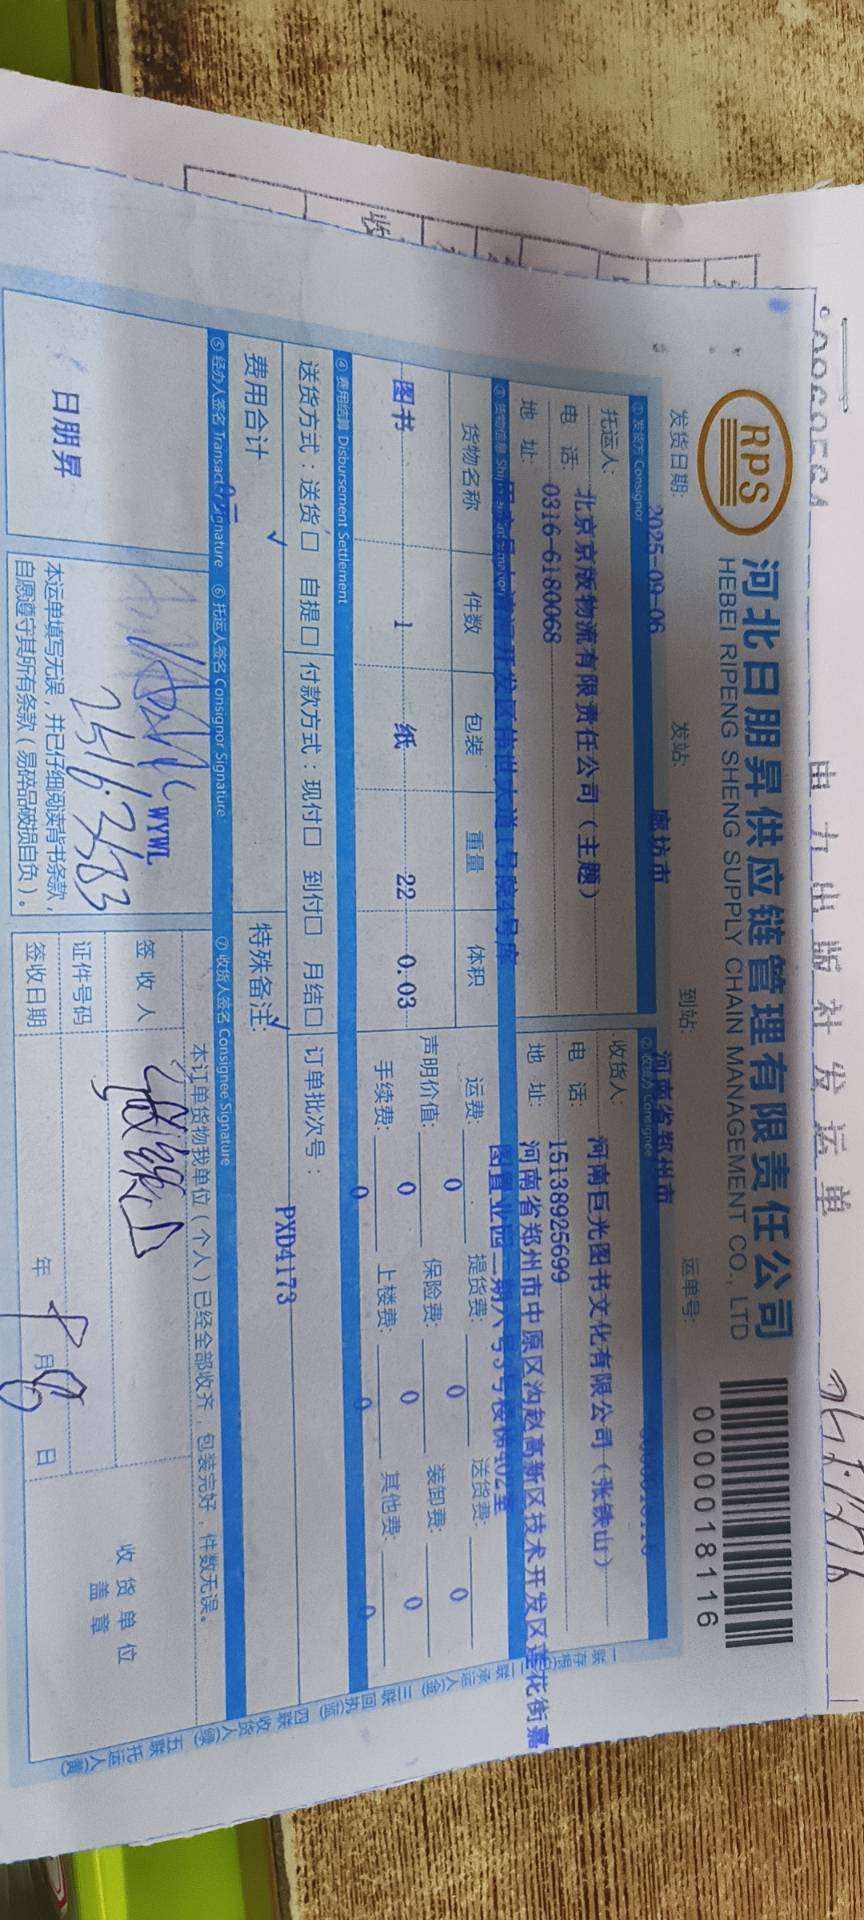 电力出版社发运单
RPS
河北日朋昇供应链管理有限责任公司
HEBEI RIPENG SHENG SUPPLY CHAIN MANAGEMENT CO., LTD
0000018116
发货日期: 2025-09-06 发站: 廊坊市 到站: 河南省郑州市 运单号:
① 发货方 Consignor ② 收货方 Consignee
托运人: 北京京版物流有限责任公司（主题） 收货人: 河南巨光图书文化有限公司（张铁山）
电 话: 0316-6180068 电 话: 15138925699
地 址: 地 址: 河南省郑州市中原区沟赵高新区技术开发区莲花街嘉
③ 货物信息
货物名称 件数 包装 重量 体积 运费: 0 提货费: 0 送货费: 0
图书 1 纸 22 0.03 声明价值: 0 保险费: 0 装卸费: 0
手续费: 0 上楼费: 0 其他费: 0
④ 费用结算 Disbursement Settlement
送货方式：送货☐ 自提☐ 付款方式：现付☐ 到付☐ 月结☐ 订单批次号：
费用合计 特殊备注: PXD4173
⑤ 经办人签名 ⑥ 托运人签名 Consignor Signature ⑦ 收货人签名 Consignee Signature
日朋昇
WYWL
本运单填写无误，并已仔细阅读背书条款，
自愿遵守其所有条款（易碎品破损自负）。
本订单货物我单位（个人）已经全部收齐，包装完好，件数无误。
签收人 张铁山
证件号码
签收日期 年 9 月 8 日
收货单位
盖章
一联存根 二联承运人(金) 三联回执(蓝) 四联收货人(绿) 五联托运人(黄)